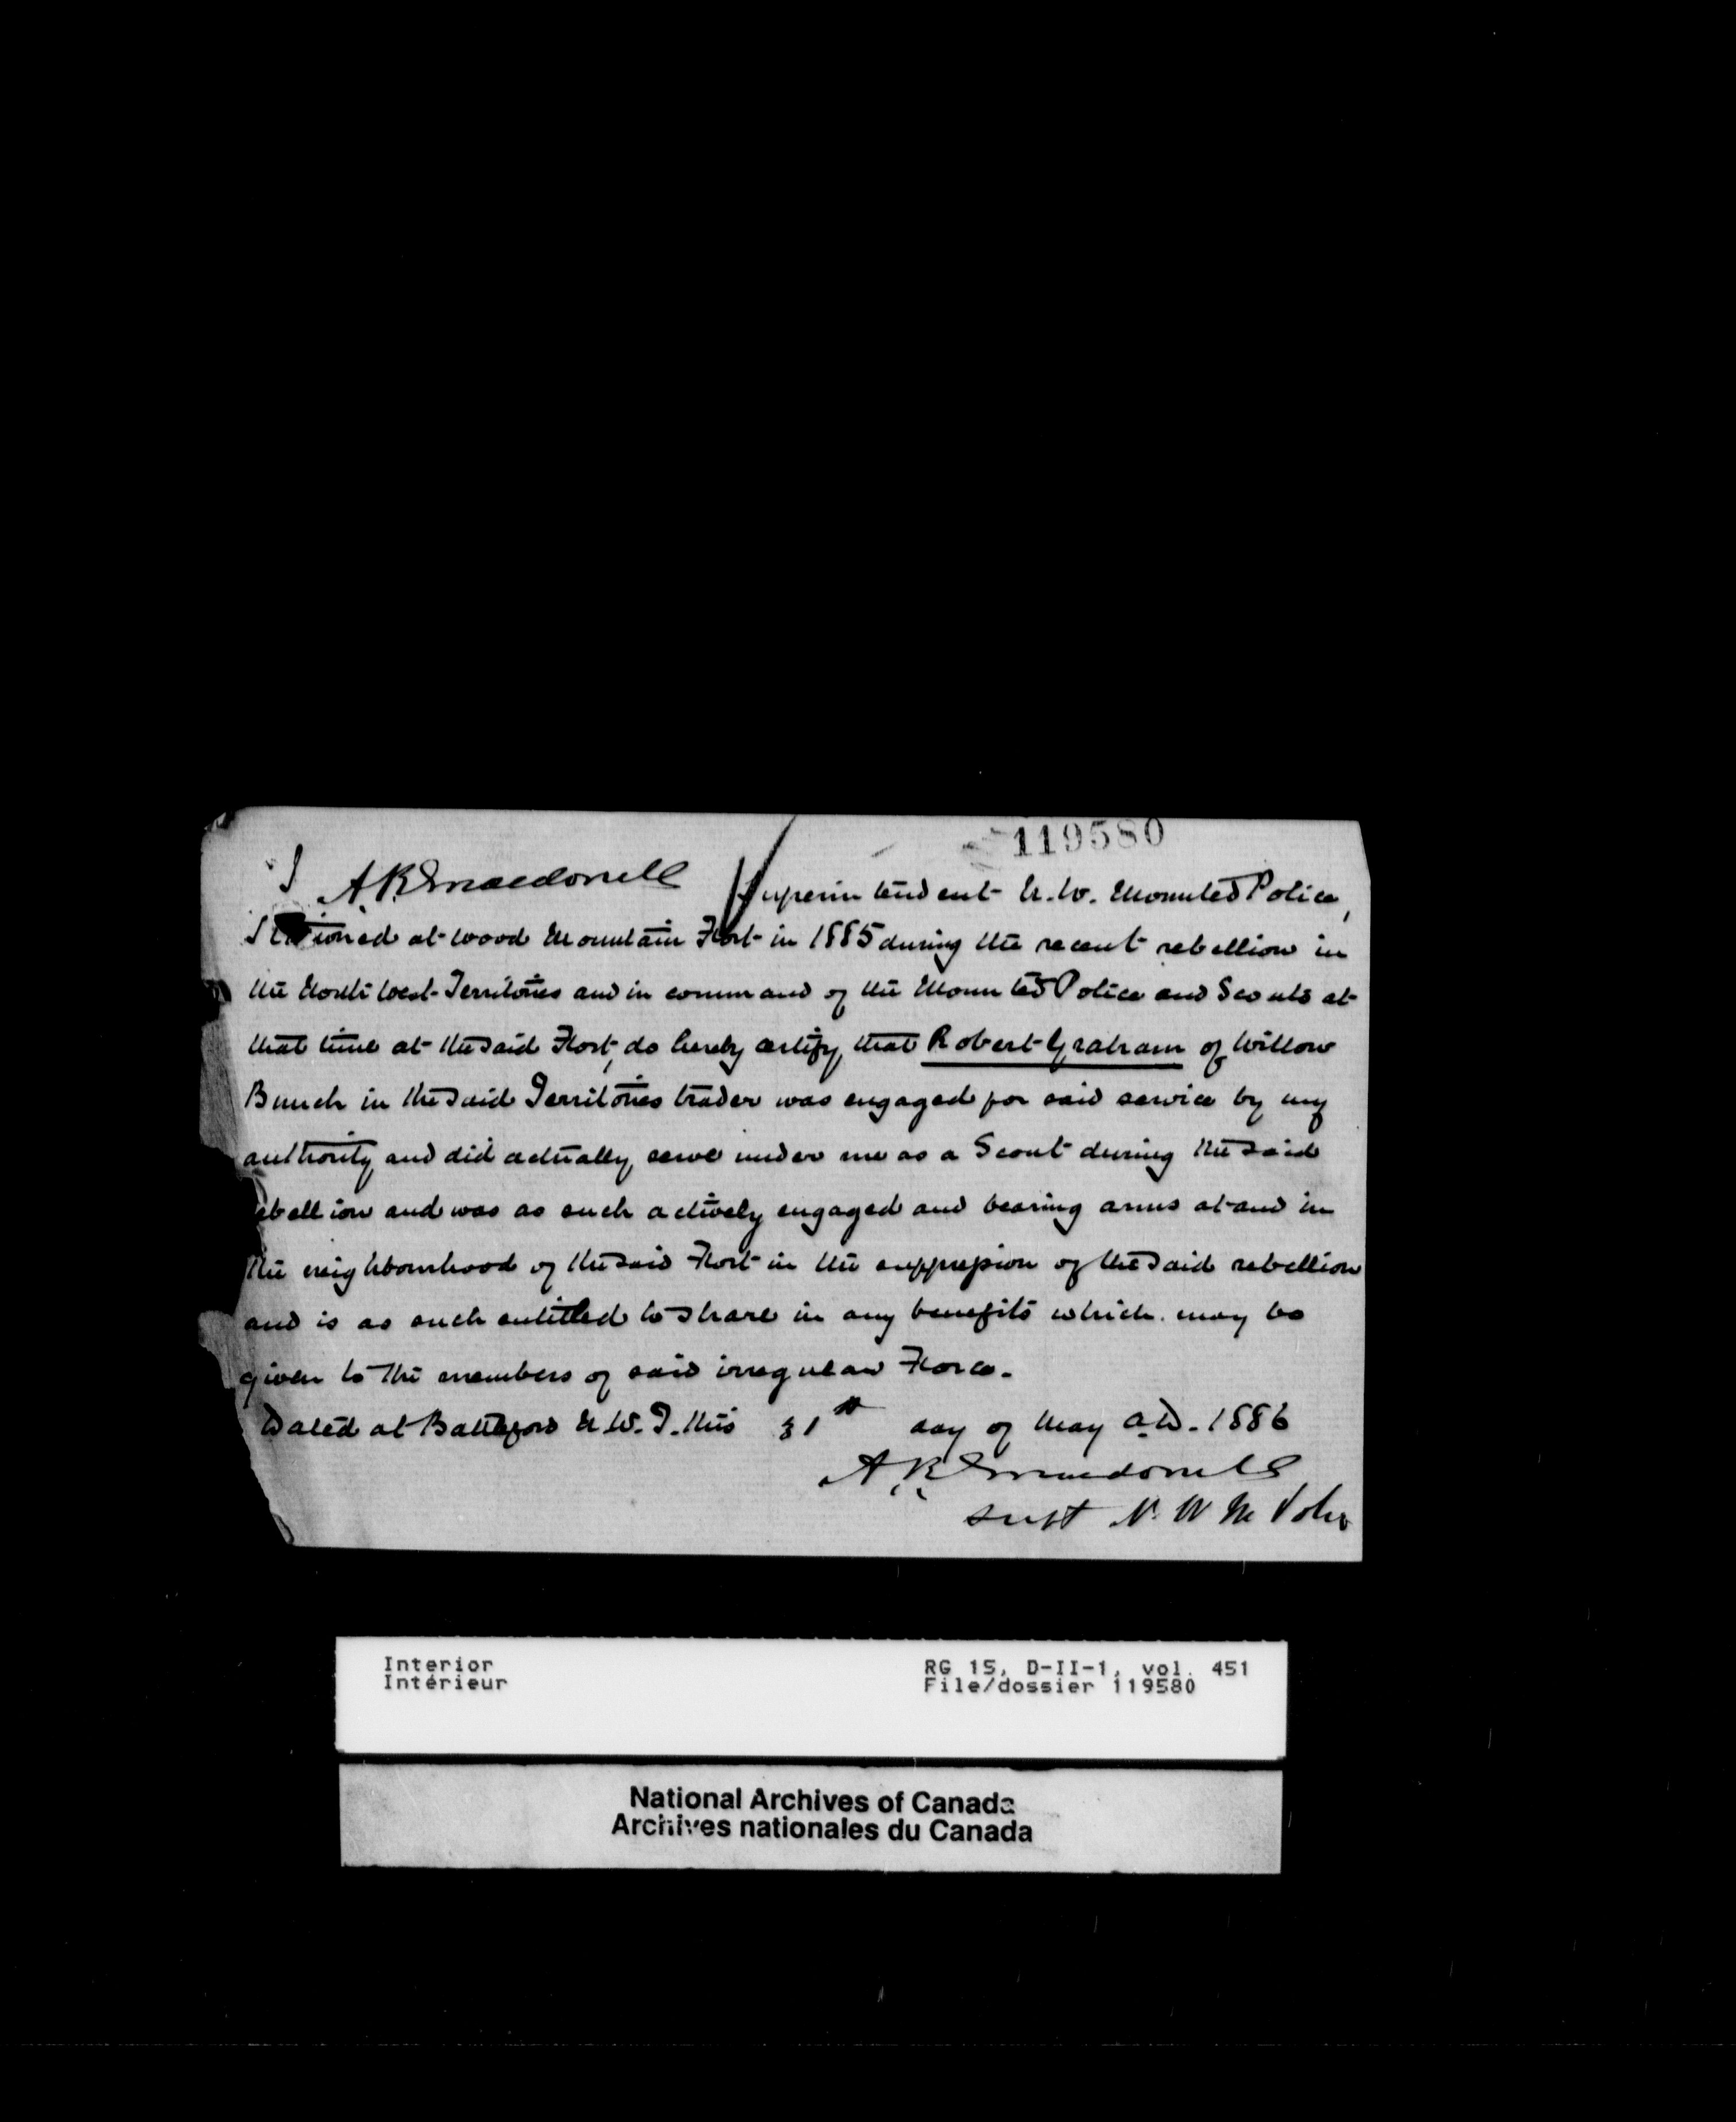 119580
I A.R. Macdonell Superintendent N.W. Mounted Police,
Stationed at Wood Mountain Fort in 1885 during the recent rebellion in
the North West Territories and in command of the Mounted Police and Scouts at
that time at the said Fort, do hereby certify that Robert Graham of Willow
Bunch in the said Territories trader was engaged for said service by my
authority and did actually serve under me as a Scout during the said
rebellion and was as such actively engaged and bearing arms at and in
the neighbourhood of the said Fort in the suppression of the said rebellion
and is as such entitled to share in any benefits which may be
given to the members of said irregular Force.
Dated at Battleford N.W.T. this 31st day of May A.D. 1886
A.R. Macdonell
Supt N.W.M Police
Interior RG 15, D-II-1, vol. 451
Intérieur File/dossier 119580
National Archives of Canada
Archives nationales du Canada